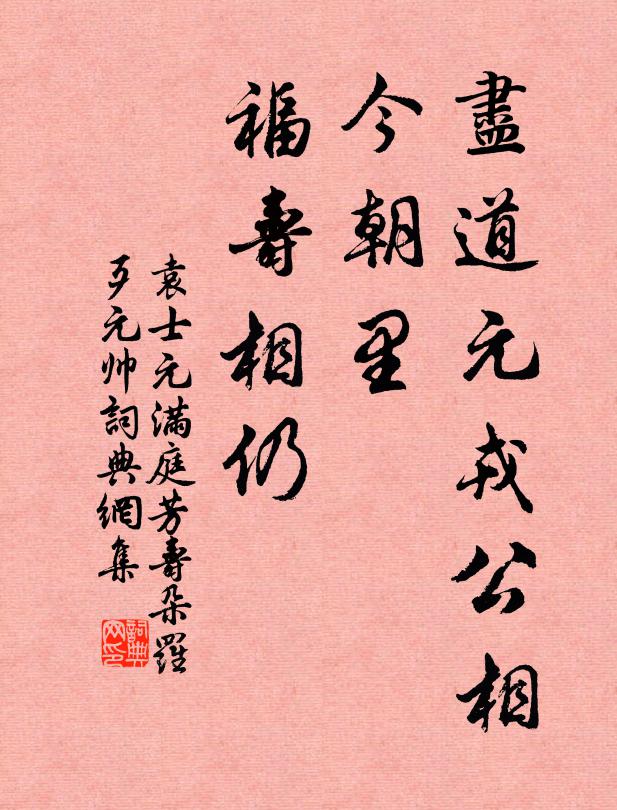 盡道元戎公相
今朝里
福壽相仍
袁士元滿庭芳壽朵羅
歹元帅詞典網集
詞典网印